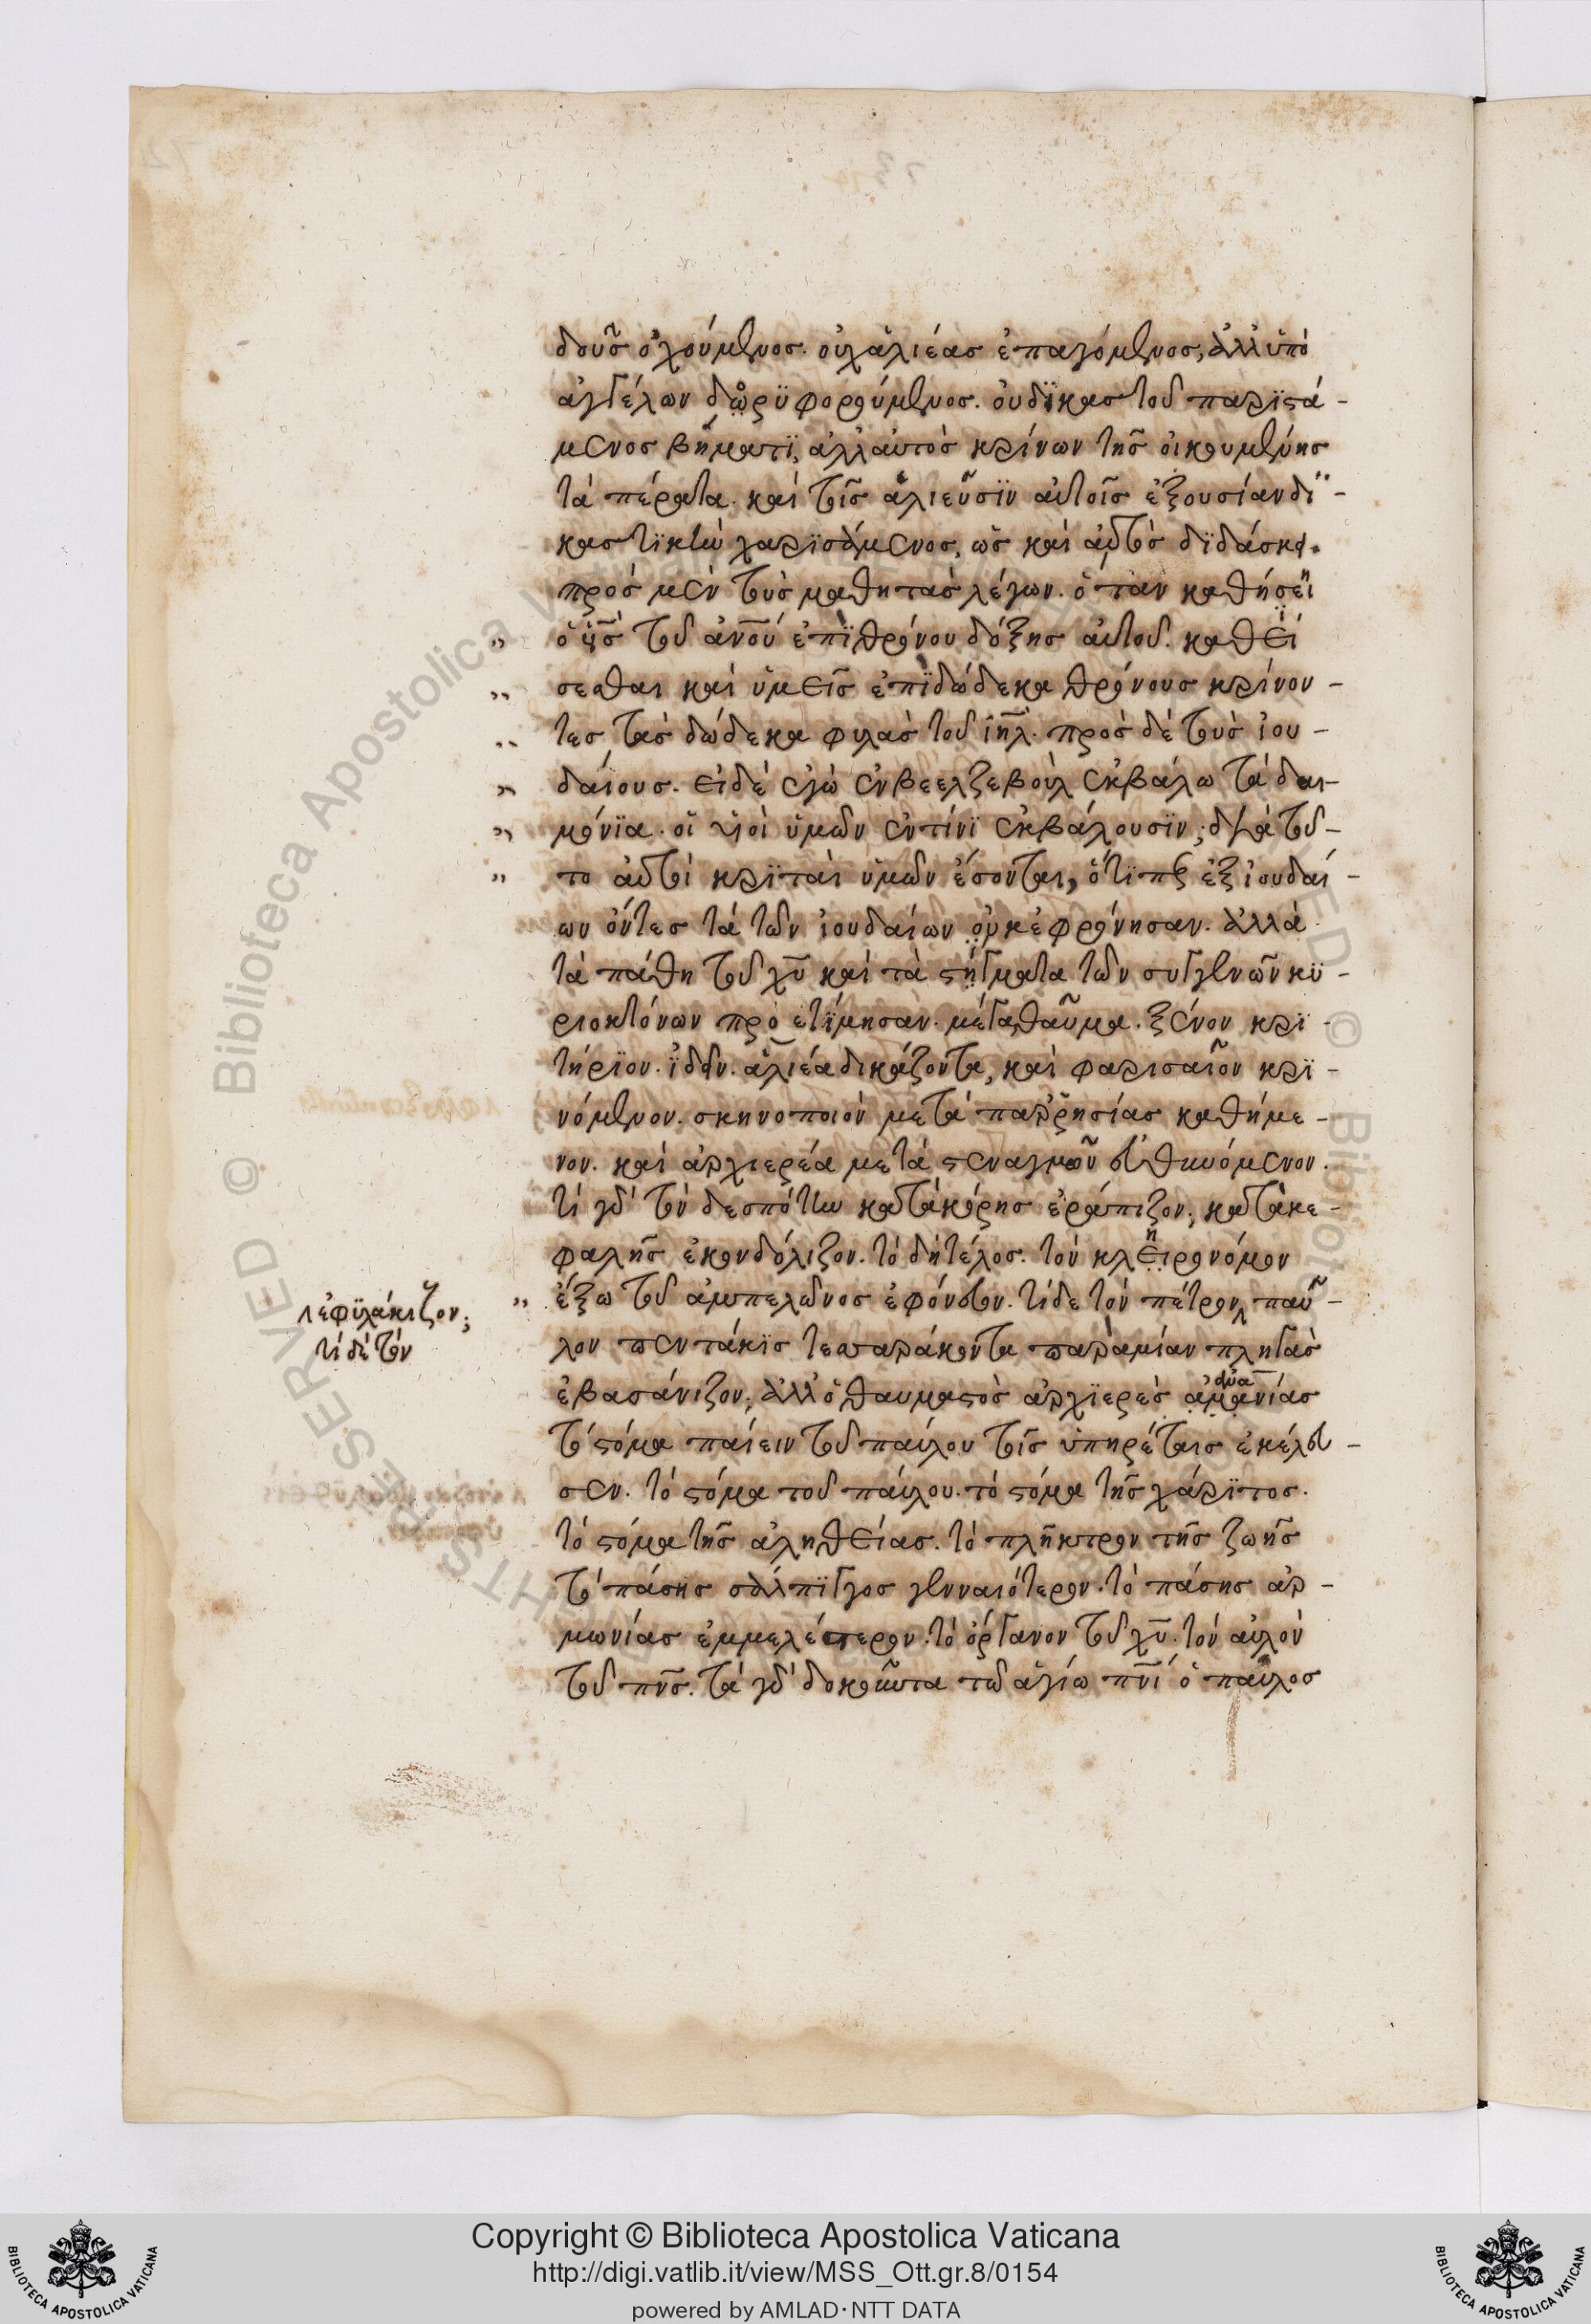 δουσ ὀχούμενοσ. οὐχἁλιέασ ἐπαγόμενοσ, ἀλλ᾽ ὑπὸ
ἀγγέλων δωρϋφορούμενοσ. οὐδϊκαστοῦ παρϊστά-
μενοσ βήματϊ, ἀλλαὐτὸσ κρίνων τῆσ οἰκουμένησ
τὰ πέρατα. καὶ τοῖσ ἁλιεῦσϊν αὐτοῖσ ἐξουσίανδϊ-
καστϊκὴν χαρϊσάμενοσ, ὡσ καὶ αὐτὸσ δϊδάσκει.
πρὸσ μὲν τοὺσ μαθητὰσ λέγων. ὅταν καθήσει
ὁ ὑσ τοῦ ἀνου ἐπὶ θρόνου δόξησ αὐτοῦ. καθεί
σεσθαι καὶ ὑμεῖσ ἐπὶ δώδεκα θρόνουσ κρίνον-
τεσ τὰσ δώδεκα φυλὰσ τοῦ ἰηλ. πρὸσ δὲ τοὺσ ἰου-
δαίουσ. εἰδὲ ἐγὼ ἐνβεελζεβοὺλ ἐκβάλω τὰ δαι-
μόνϊα. οἱ υἱοὶ ὑμῶν ἐντίνϊ ἐκβάλουσϊν; διὰ τοῦ-
το αὐτοὶ κρϊταὶ ὑμῶν ἔσονται, ὅτϊπερ ἐξἰουδαί-
ων ὄντεσ τὰ τῶν ἰουδαίων οὐκἐφρόνησαν. ἀλλὰ
τὰ πάθη τοῦ χυ καὶ τὰ στήγματα τῶν συγγενῶν κϋ-
ριοκτόνων προετίμησαν. μέγαθαῦμα. ξένον κρϊ-
τήρϊον. ϊδεῖν. ἁλιέα δικάζοντα, καὶ φαρισαῖον κρϊ-
νόμενον. σκηνοποιὸν μετὰ παρρησίασ καθήμε-
νον. καὶ ἀρχιερέα μετὰ στεναγμῶν εὐθηνόμενον.
τί γὰρ τὸν δεσπότην κατὰκόρησ ἐράπιζον; κατὰκε-
φαλῆσ ἐκονδόλιζον. τὸ δὴ τέλοσ. τὸν κλειρονόμον
ἔξω τοῦ ἀμπελῶνοσ ἐφόνευον. τίδε τὸν πέτρον παῦ-
λον πεντάκϊσ τεσσαράκοντα παραμίαν πληγὰσ
ἐβασάνιζον; ἀλλ᾽ ὁ θαυμαστὸσ ἀρχϊερεὺσ ἀμανίασ
τὸ στόμα παίειν τοῦ παύλου τοῖσ ὑπηρέταισ ἐκέλευ-
σεν. τὸ στόμα τοῦ παύλου. τὸ στόμα τῆσ χάρϊτοσ.
τὸ στόμα τῆσ ἀληθείασ. τὸ πλῆκτρον τῆσ ζωῆσ
τὸ πάσησ σάλπϊγγοσ γενναιότερον. τὸ πάσησ ἁρ-
μωνίασ ἐμμελέστερον. τὸ ὄργανον τοῦ χυ. τὸν αὐλὸν
τοῦ πνσ. τὰ γὰρ δοκοῦντα τῶ ἁγίω πνι ὁ παῦλοσ
ἐφϋλάκιζον;
τί δὲ τὸν
Copyright © Biblioteca Apostolica Vaticana
http://digi.vatlib.it/view/MSS_Ott.gr.8/0154
powered by AMLAD·NTT DATA
BIBLIOTECA APOSTOLICA VATICANA
BIBLIOTECA APOSTOLICA VATICANA